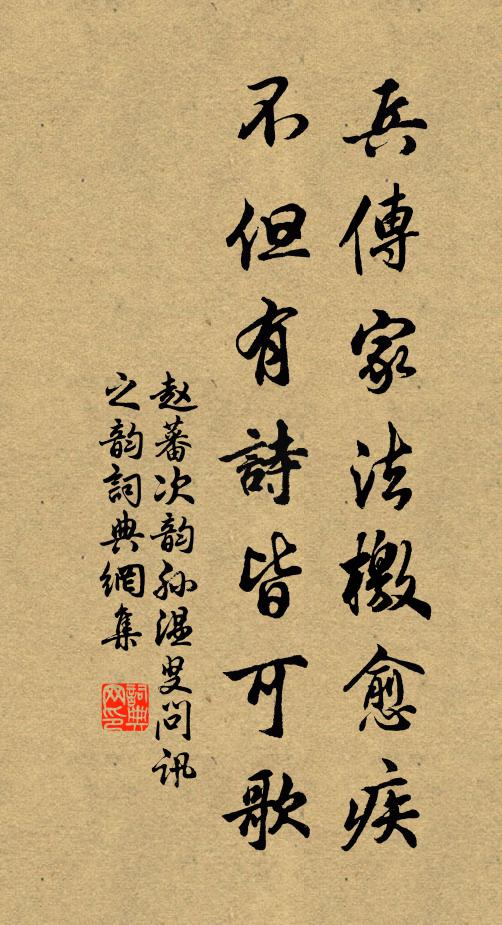 兵傳家法檄愈疾
不但有詩皆可歌
赵蕃次韵孙温叟问讯
之韵詞典網集
詞典网印